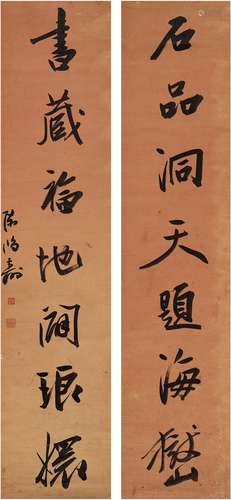 石品洞天題海嶽
書藏福地闢琅嬛
陳鴻壽